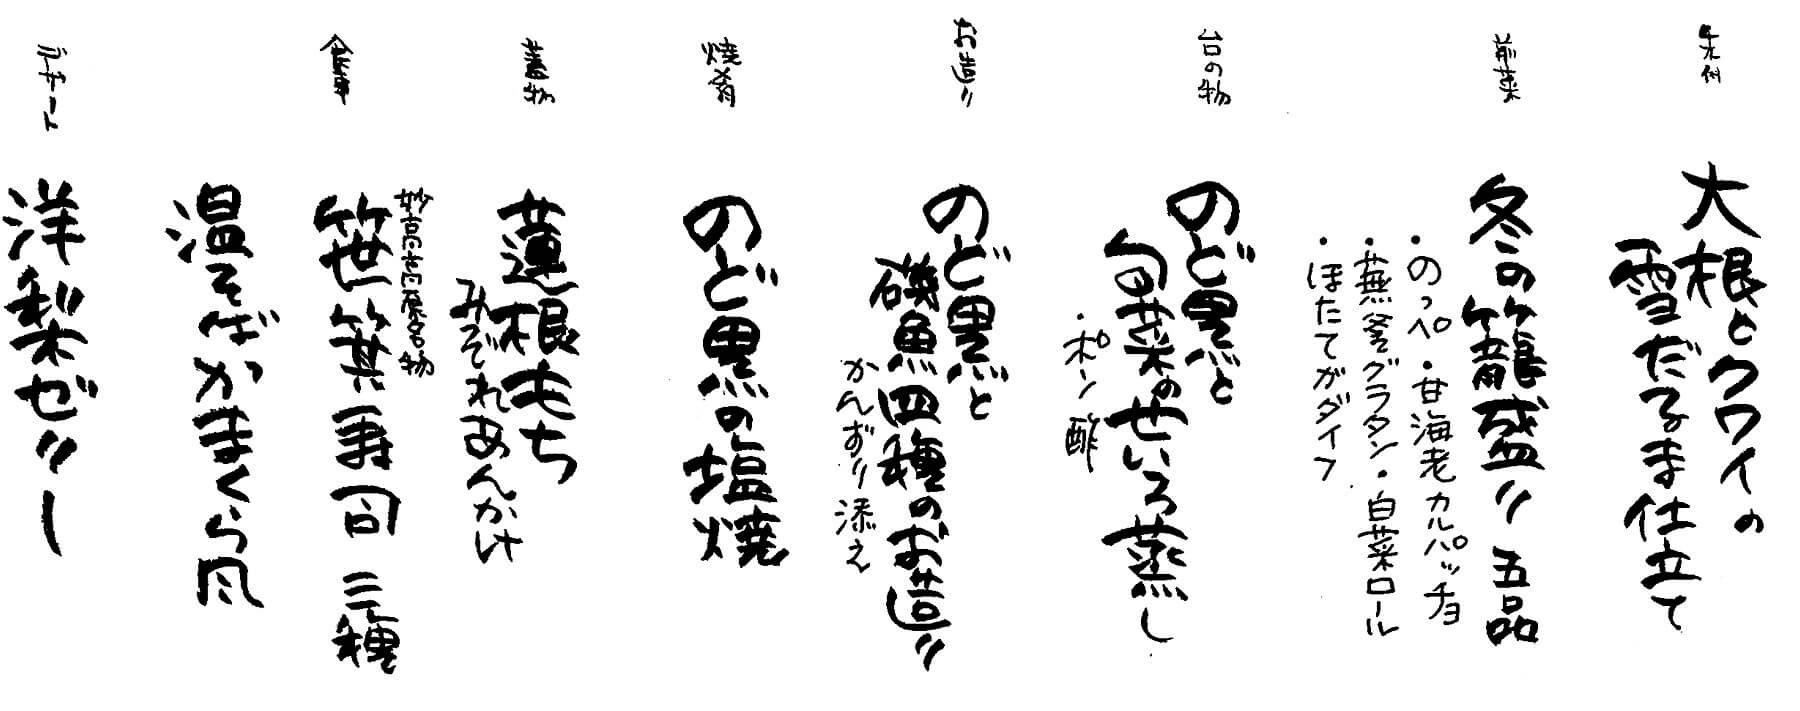 先附
大根とクワイの
雪だるま仕立て
前菜
冬の籠盛り 五品
・のっぺ・甘海老カルパッチョ
・蕪釜グラタン・白菜ロール
・ほたてガダイフ
台の物
のど黒と
旬菜のせいろ蒸し
・ポン酢
お造り
のど黒と
磯魚四種のお造り
かんずり添え
焼肴
のど黒の塩焼
蓋物
蓮根もち
みぞれあんかけ
食事
妙高高原名物
笹箕寿司 三種
温そばかまくら風
デザート
洋梨ゼリー